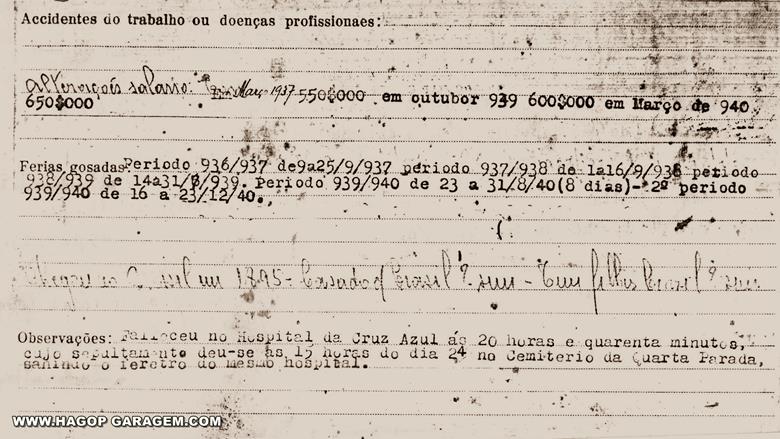 Accidentes do trabalho ou doenças profissionaes:
alterações salario: Em Março 1937 550$000 em outubor 939 600$000 em Março de 940
650$000
Ferias gosadas: Periodo 936/937 de 9a25/9/937 periodo 937/938 de 1a16/9/938 periodo
938/939 de 14a31/8/939. Periodo 939/940 de 23 a 31/8/40(8 dias)- 2º periodo
939/940 de 16 a 23/12/40.
Chegou no Brasil em 1895 - Casado c/ Brasil ª sim - Tem filhos Brasil º sim
Observações: Falleceu no Hospital da Cruz Azul ás 20 horas e quarenta minutos,
cujo sepultamento deu-se ás 15 horas do dia 24 no Cemiterio da Quarta Parada,
sahindo o feretro do mesmo hospital.
WWW.HAGOP GARAGEM.COM